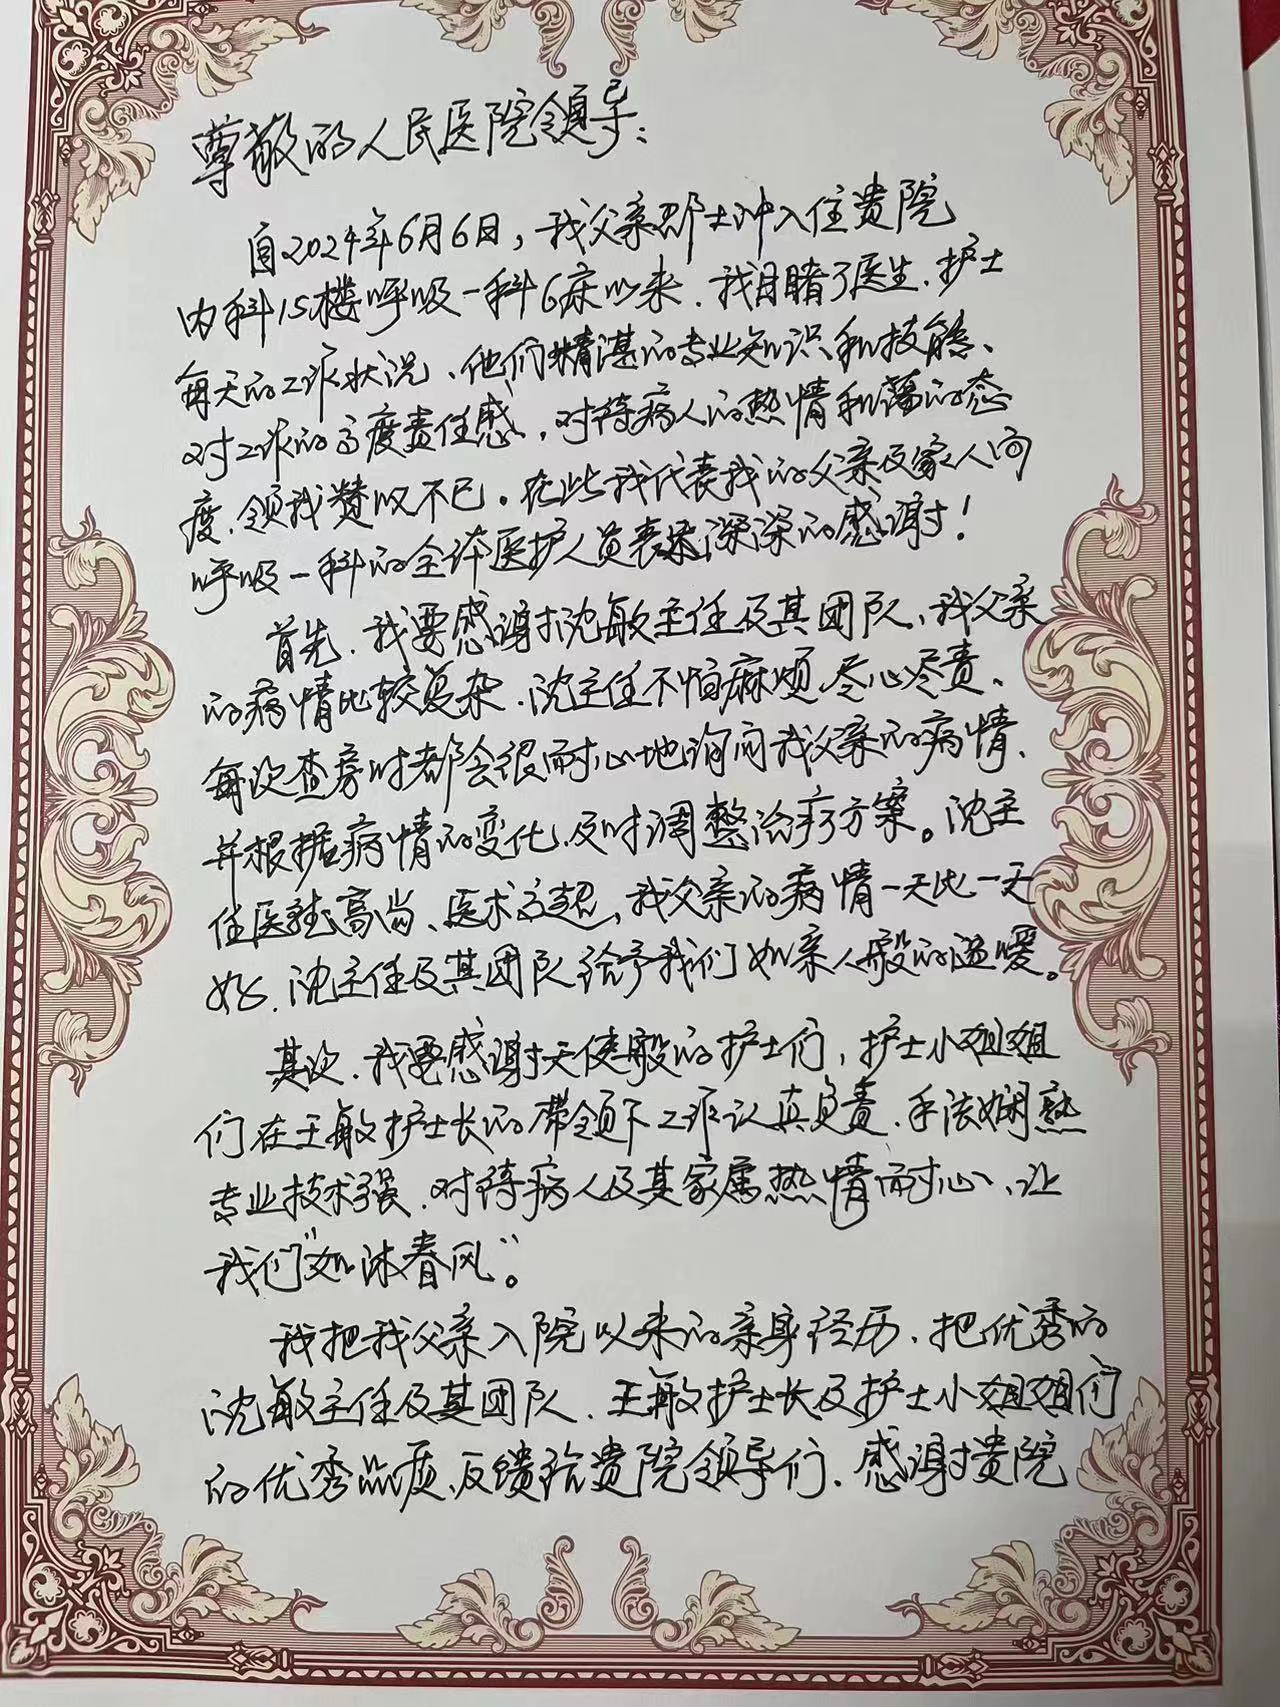 尊敬的人民医院领导：
自2024年6月6日，我父亲郡士冲入住贵院
内科15楼呼吸一科6床以来，我目睹了医生、护士
每天的工作状况，他们精湛的专业知识和技能、
对工作的高度责任感，对待病人的热情和蔼的态
度，领我赞叹不已。在此我代表我的父亲及家人向
呼吸一科的全体医护人员表达深深的感谢！
首先，我要感谢沈敏主任及其团队，我父亲
的病情比较复杂，沈主任不怕麻烦、尽心尽责、
每次查房时都会很耐心地询问我父亲的病情、
并根据病情的变化，及时调整治疗方案。沈主
任医德高尚、医术高超，我父亲的病情一天比一天
好，沈主任及其团队给予我们如亲人般的温暖。
其次，我要感谢天使般的护士们，护士小姐姐
们在王敏护士长的带领下工作认真负责，手法娴熟
专业技术强，对待病人及其家属热情耐心，让
我们“如沐春风”。
我把我父亲入院以来的亲身经历，把优秀的
沈敏主任及其团队，王敏护士长及护士小姐姐们
的优秀品质，反馈给贵院领导们，感谢贵院